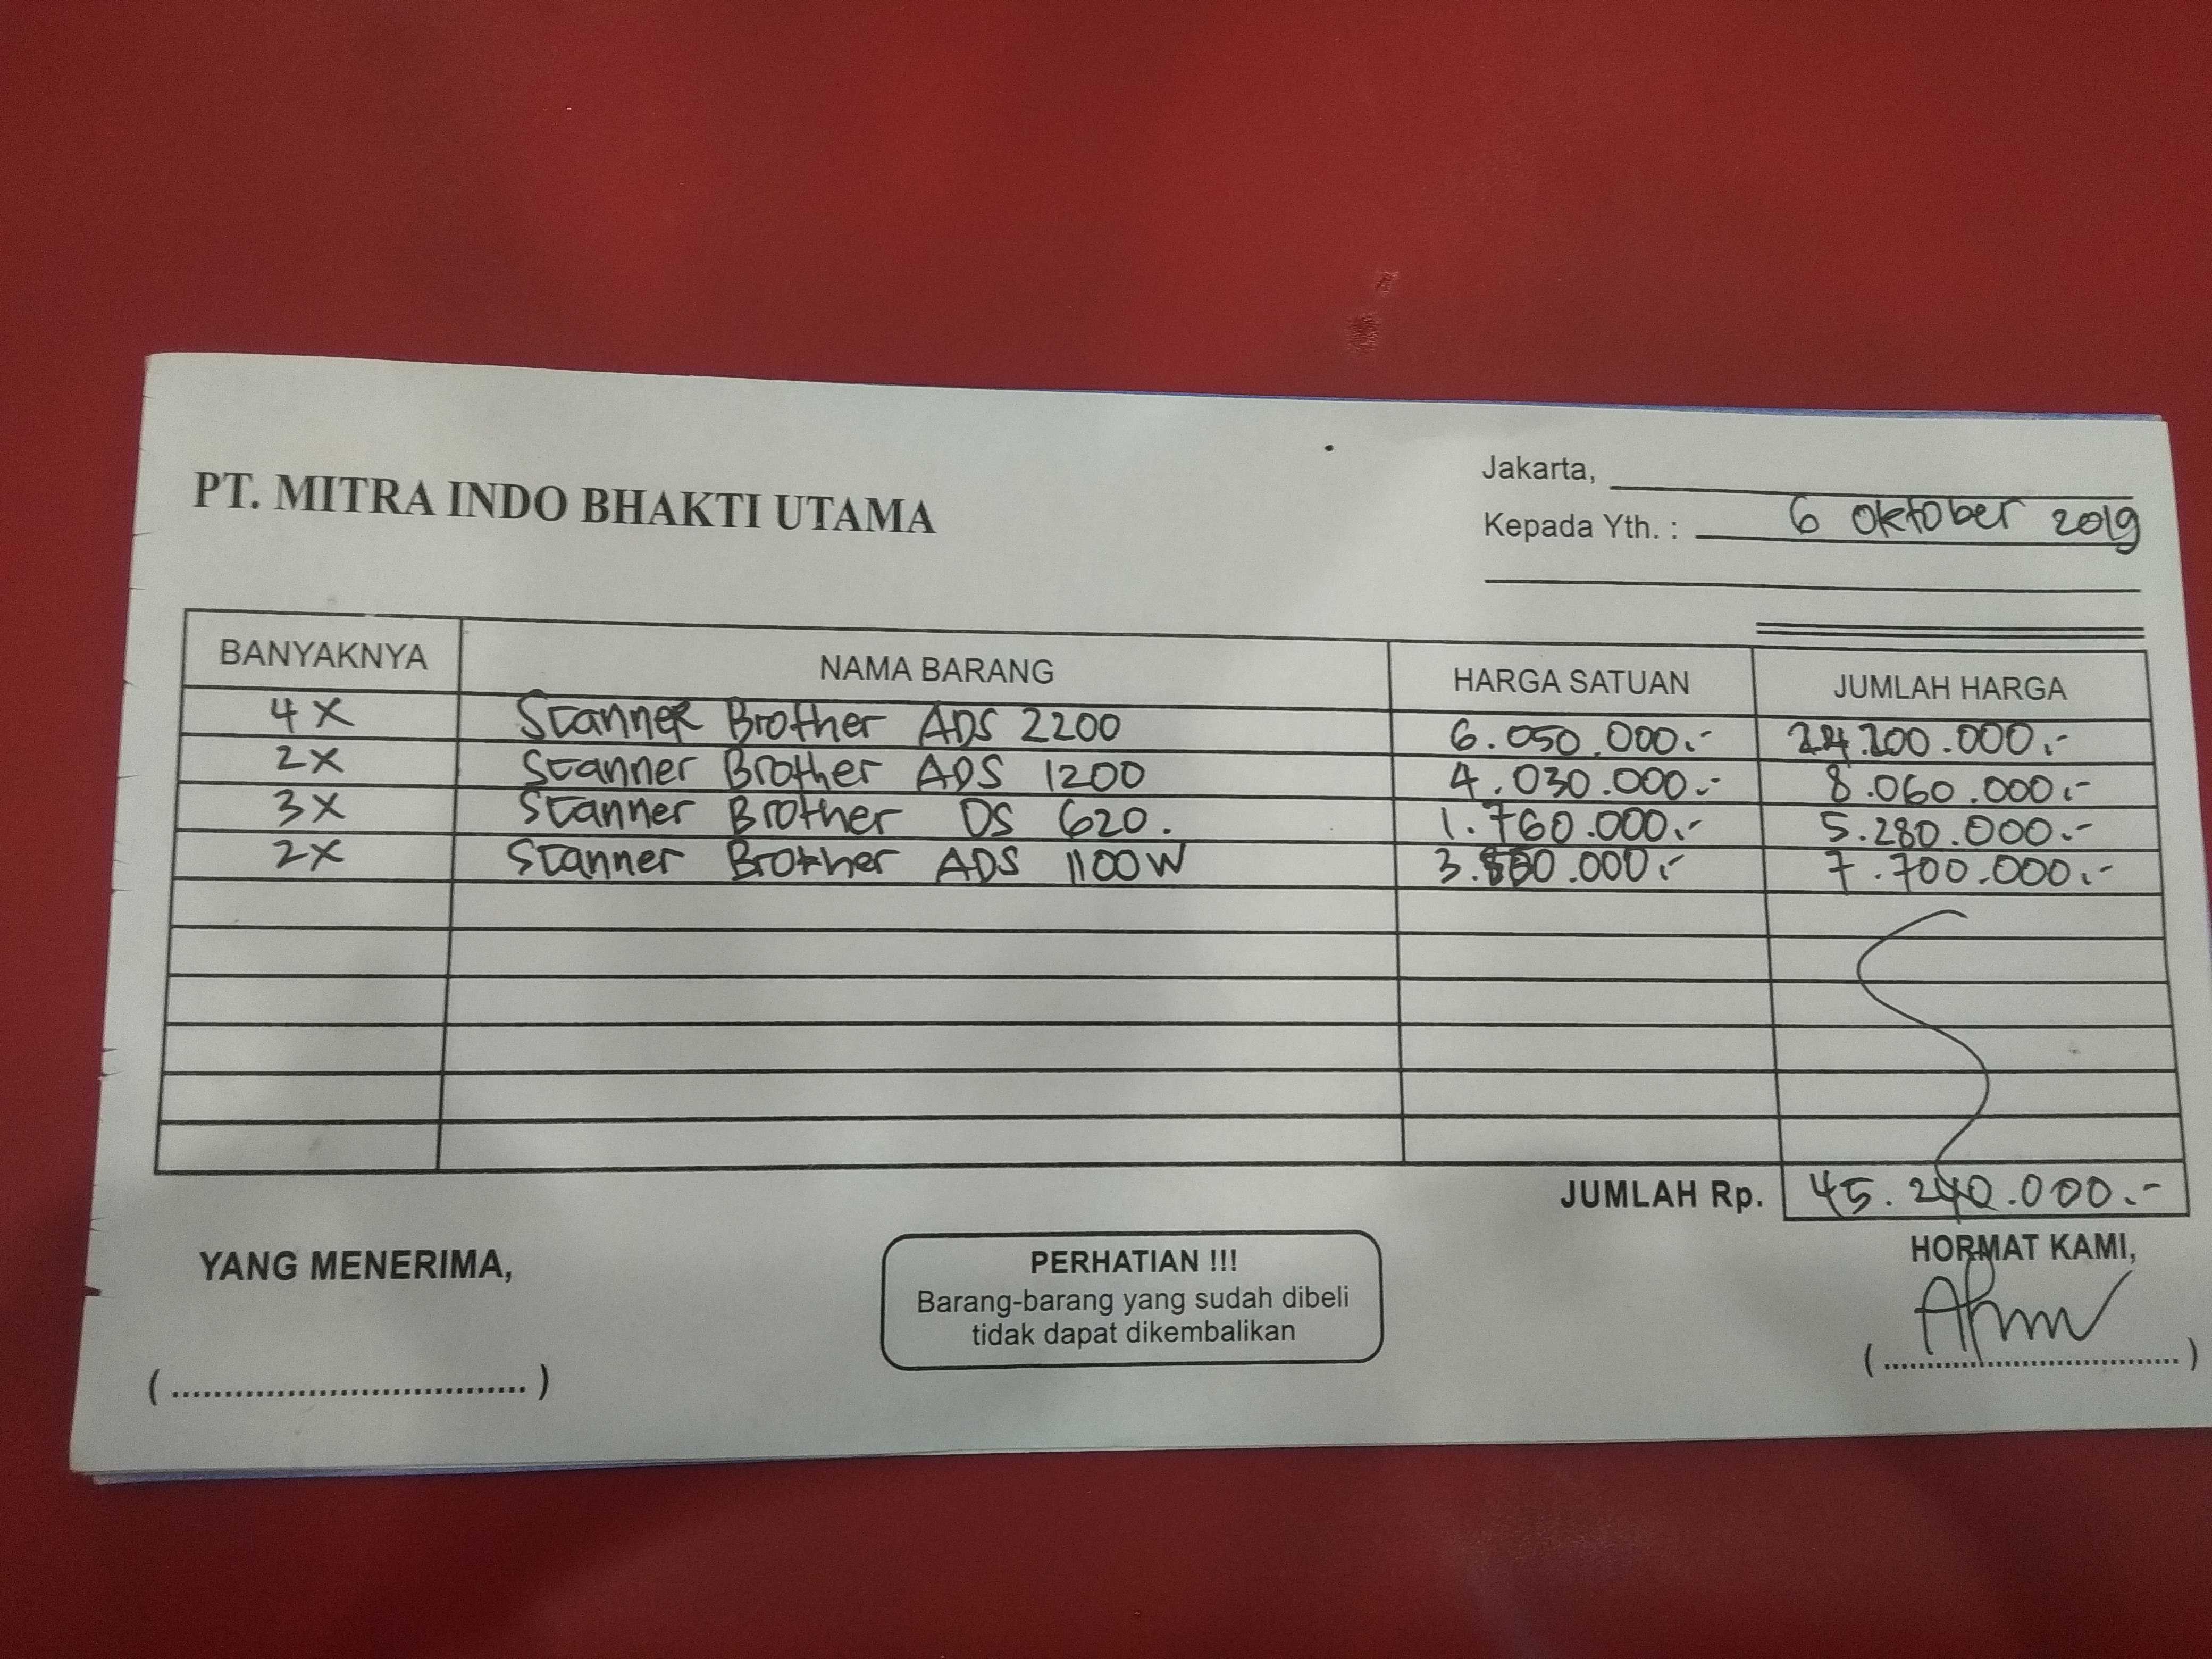 PT. MITRA INDO BHAKTI UTAMA
Jakarta,
Kepada Yth. : 6 Oktober 2019
BANYAKNYA NAMA BARANG HARGA SATUAN JUMLAH HARGA
4x Scanner Brother ADS 2200 6.050.000.- 24.200.000.-
2x Scanner Brother ADS 1200 4.030.000.- 8.060.000.-
3x Scanner Brother DS 620. 1.760.000.- 5.280.000.-
2x Scanner Brother ADS 1100W 3.850.000.- 7.700.000.-
JUMLAH Rp. 45.240.000.-
YANG MENERIMA,
PERHATIAN !!!
Barang-barang yang sudah dibeli
tidak dapat dikembalikan
HORMAT KAMI,
(....................................)
(....................................)